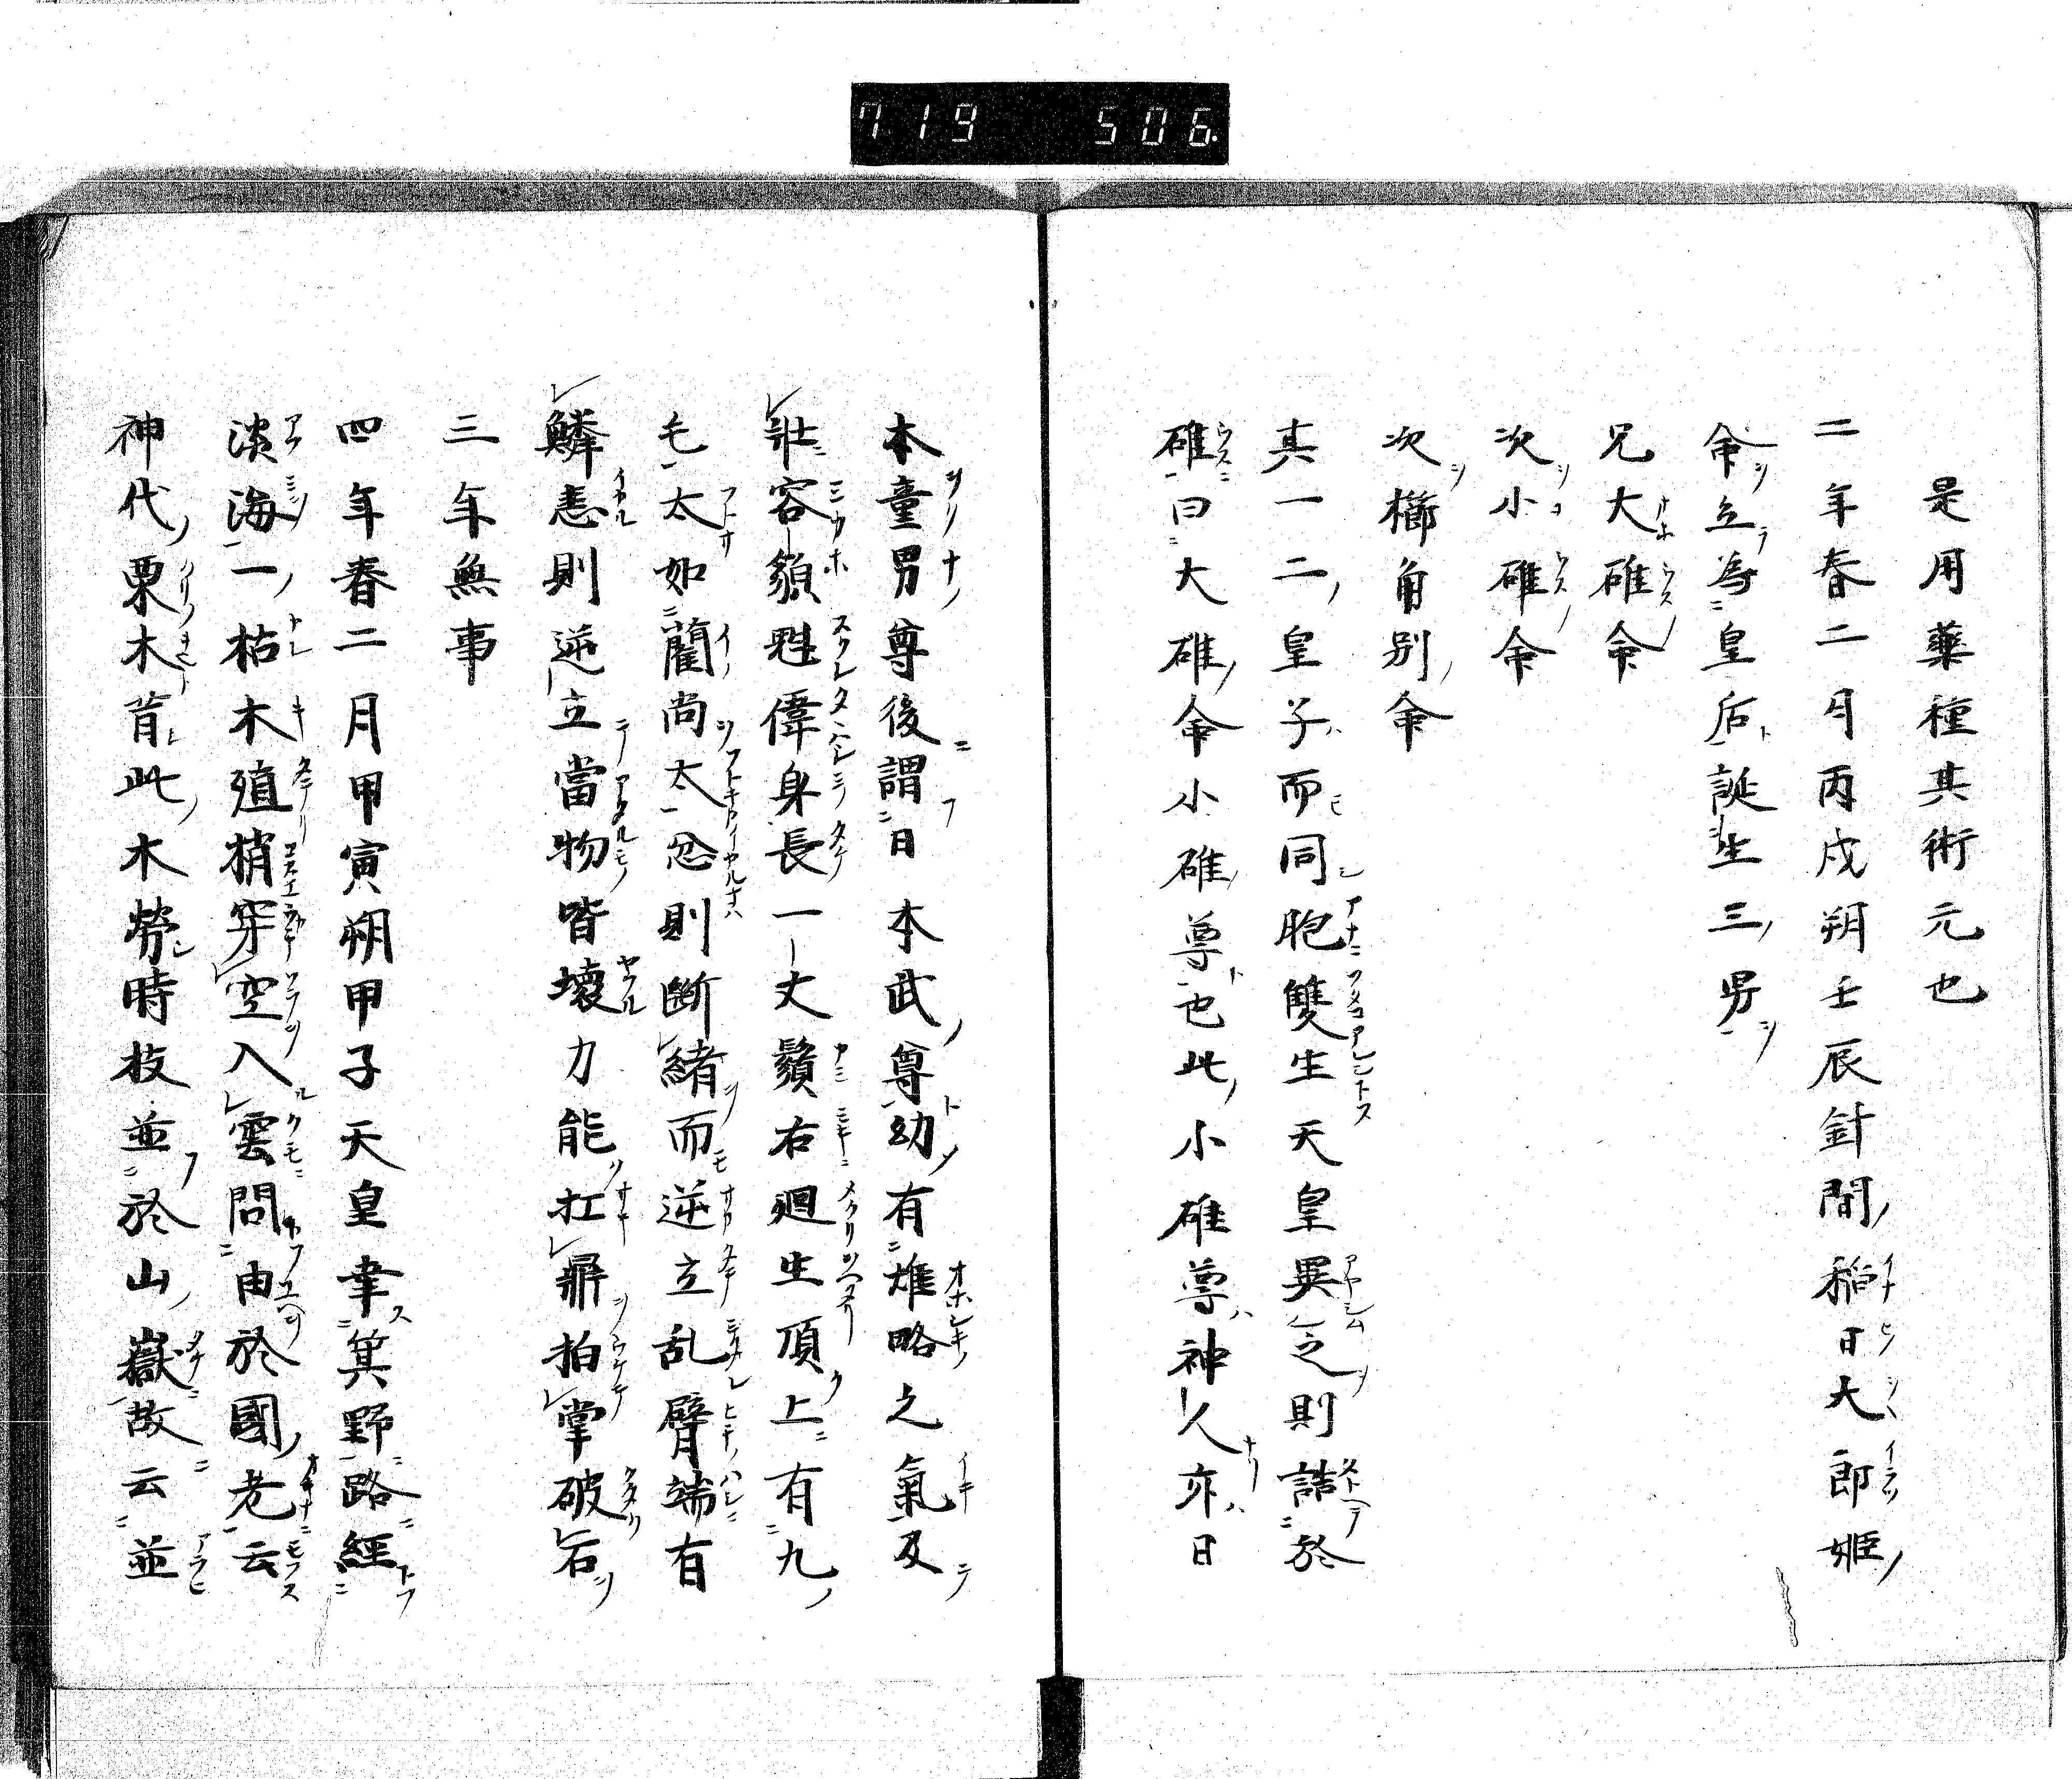 719 506
是用藥種其術元也
二年春二月丙戌朔壬辰針間稻日大郎姬
命立為皇后誕生三男
兄大碓命
次小碓命
次櫛角別命
其一二皇子而同胞雙生天皇異之則誥於
碓曰大碓命小碓尊也此小碓尊神人亦日
本童男尊後謂日本武尊幼有雄略之氣及
壯容貌魁偉身長一丈鬚右廻生頂上有九
毛太如藺尚太忿則斷緒而逆立乱臂端有
鱗恚則逆立當物皆壞力能扛鼎拍掌破石
三年無事
四年春二月甲寅朔甲子天皇幸箕野路經
淡海一枯木殖梢穿空入雲問由於國老云
神代栗木首此木勞時枝並於山嶽故云並